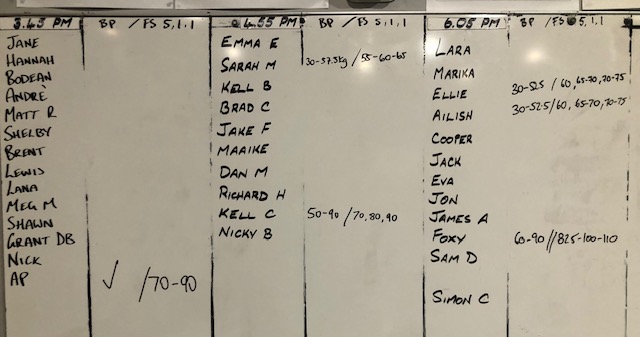 3.45 PM BP / FS 5,1,1
JANE
HANNAH
BODEAN
ANDRÈ
MATT R
SHELBY
BRENT
LEWIS
LANA
MEG M
SHAWN
GRANT DB
NICK
AP ✓ /70-90
4.55 PM BP / FS 5,1,1
EMMA E
SARAH M 30-57.5kg / 55-60-65
KELL B
BRAD C
JAKE F
MAAIKE
DAN M
RICHARD H
KELL C 50-90 / 70,80,90
NICKY B
6.05 PM BP / FS 5,1,1
LARA
MARIKA
ELLIE 30-52.5 / 60, 65-70, 70-75
AILISH 30-52.5/60, 65-70, 70-75
COOPER
JACK
EVA
JON
JAMES A
FOXY 60-90 // 82.5-100-110
SAM D
SIMON C